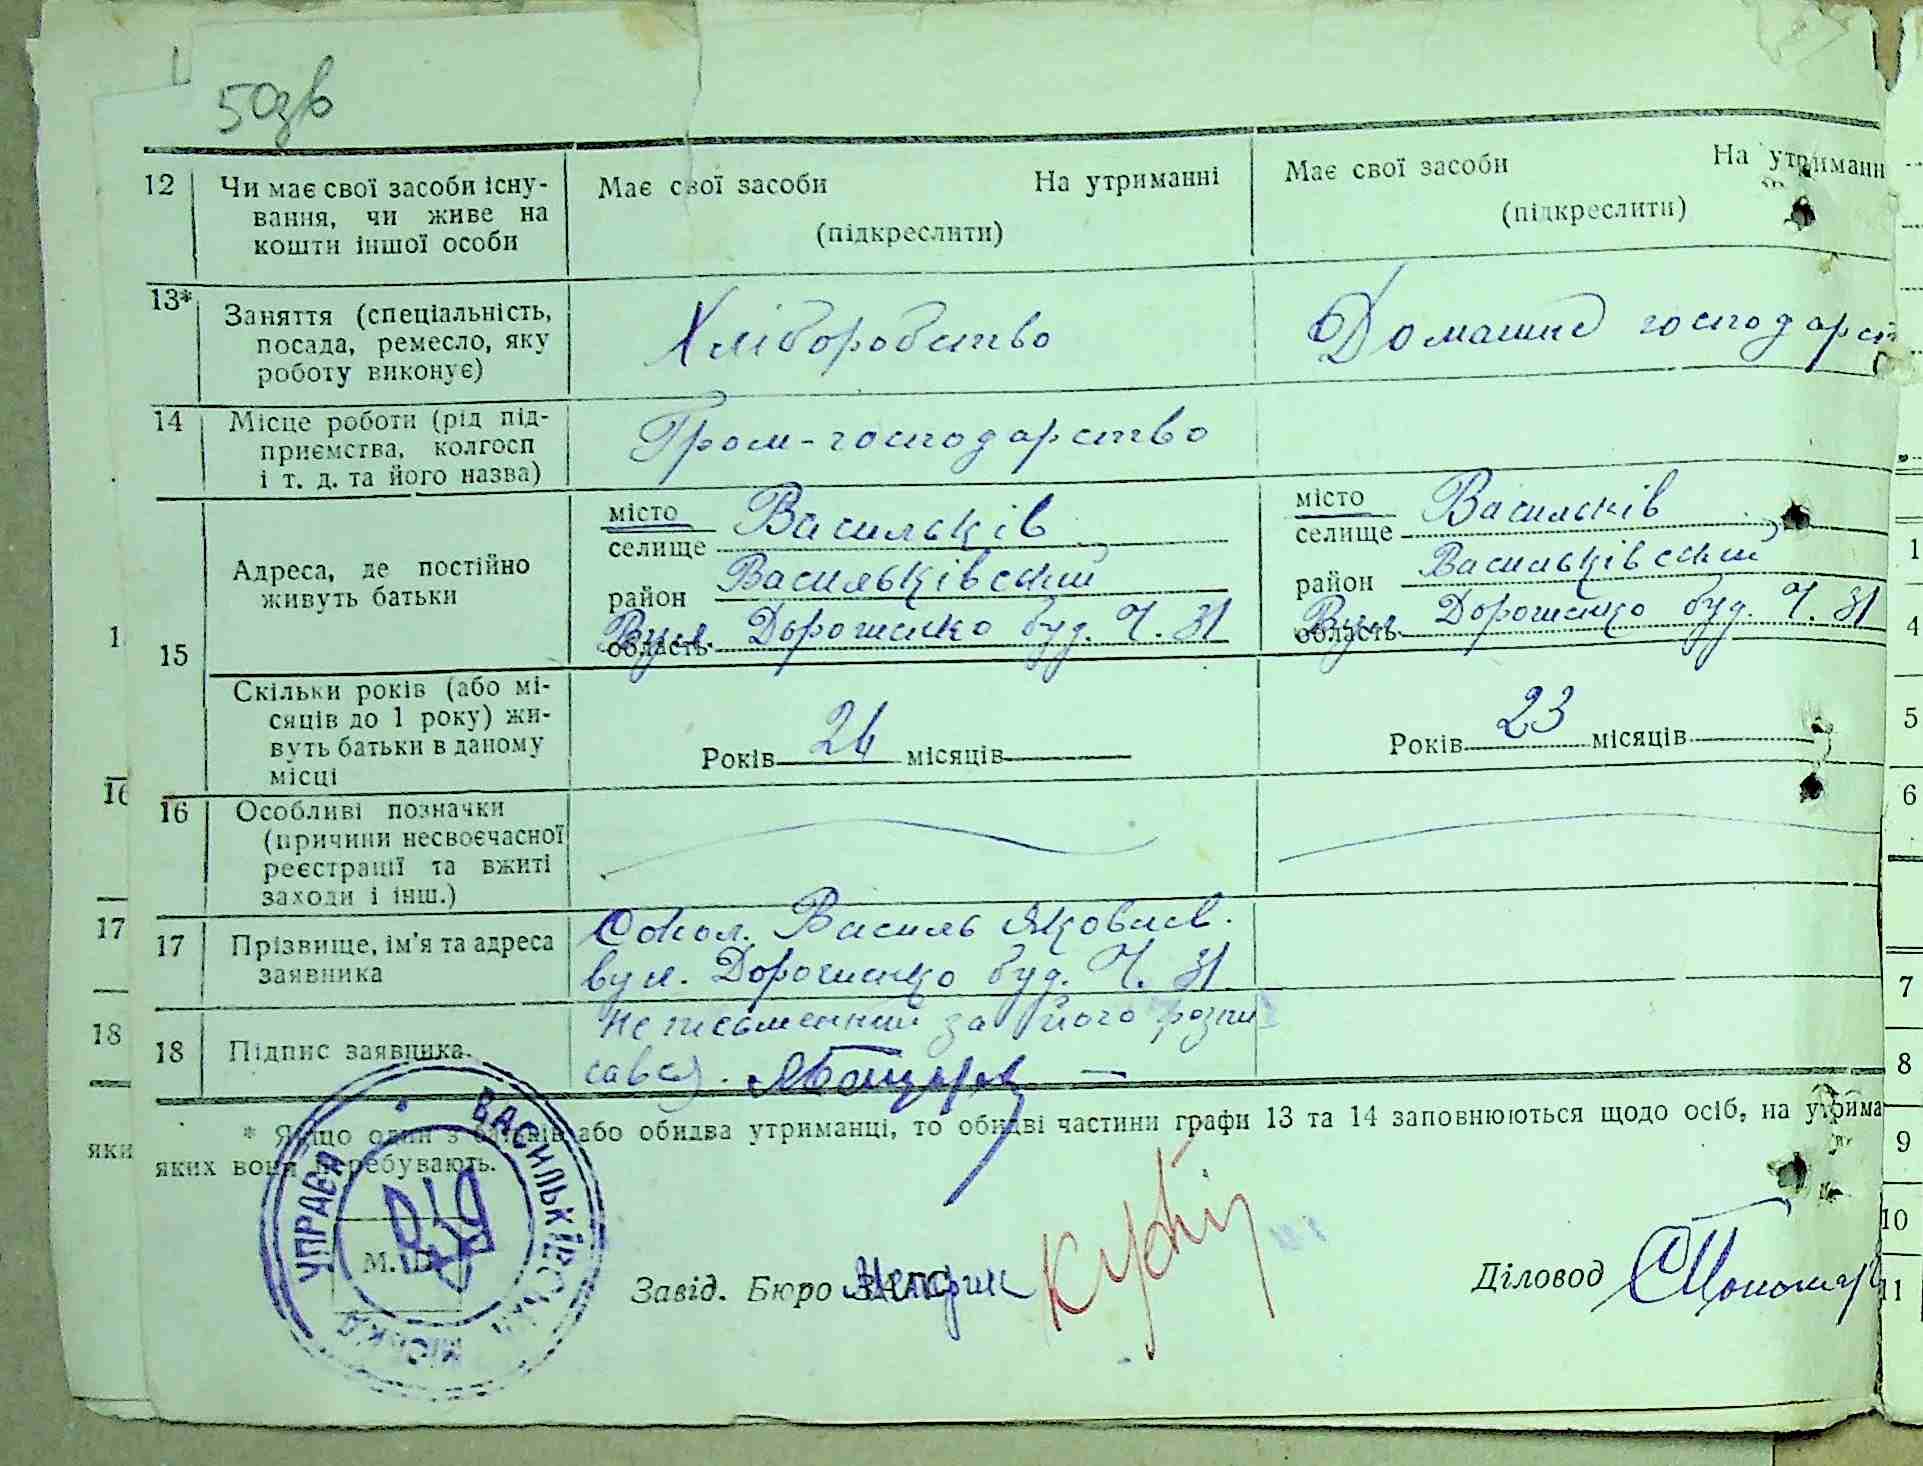 50зв
12 Чи має свої засоби існу-
вання, чи живе на
кошти іншої особи
Має свої засоби На утриманні
(підкреслити)
Має свої засоби На утриманн
(підкреслити)
13* Заняття (спеціальність,
посада, ремесло, яку
роботу виконує)
Хліборобство
Домашнє господарст
14 Місце роботи (рід під-
приємства, колгосп
і т. д. та його назва)
Гром-господарство
15
Адреса, де постійно
живуть батьки
місто Васильків
селище
район Васильківский
область Вул. Дорошенко буд. Ч. 31
місто Васильків
селище
район Васильківский
область Вул. Дорошенко буд. Ч. 31
Скільки років (або мі-
сяців до 1 року) жи-
вуть батьки в даному
місці
Років 26 місяців
Років 23 місяців
16 Особливі позначки
(причини несвоєчасної
реєстрації та вжиті
заходи і інш.)
17 Прізвище, ім'я та адреса
заявника
Сокол. Василь Яковлев.
вул. Дорошенко буд. Ч. 31
18 Підпис заявника.
Неписьменний за його розпи
савсь.
* Якщо один з батьків або обидва утриманці, то обидві частини графи 13 та 14 заповнюються щодо осіб, на утрима
яких вони перебувають.
УПРАВА ВАСИЛЬКІВСЬКА МІСЬКА
М. П.
Завід. Бюро ЗАГС
Діловод
1
16
17
18
яки
1
4
5
6
7
8
9
10
11